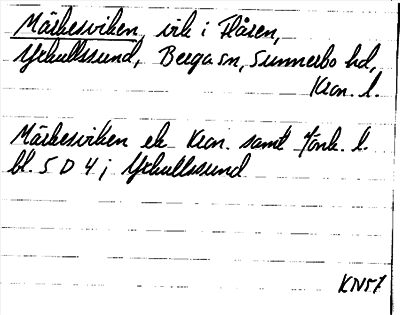 Märkesviken, vik i Flåren,
Yxkullssund, Berga sn, Sunnerbo hd,
Kron. l.
Märkesviken ek Kron. samt Jönk. l.
bl. 5 D 4 j Yxkullssund
KN57